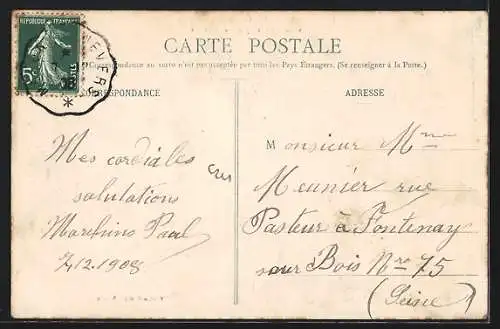 RÉPUBLIQUE FRANÇAISE
5c
POSTES
NEVERS
CARTE POSTALE
Correspondance au verso n'est pas acceptée par tous les Pays Étrangers. (Se renseigner à la Poste.)
CORRESPONDANCE
ADRESSE
Mes cordiales
salutations
Paul
7.12.1908
Monsieur Mme
Meunier rue
Pasteur à Fontenay
sous Bois Nro 75
(Seine)